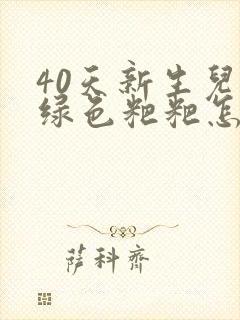 40天新生兒
绿色粑粑怎
萨科齊